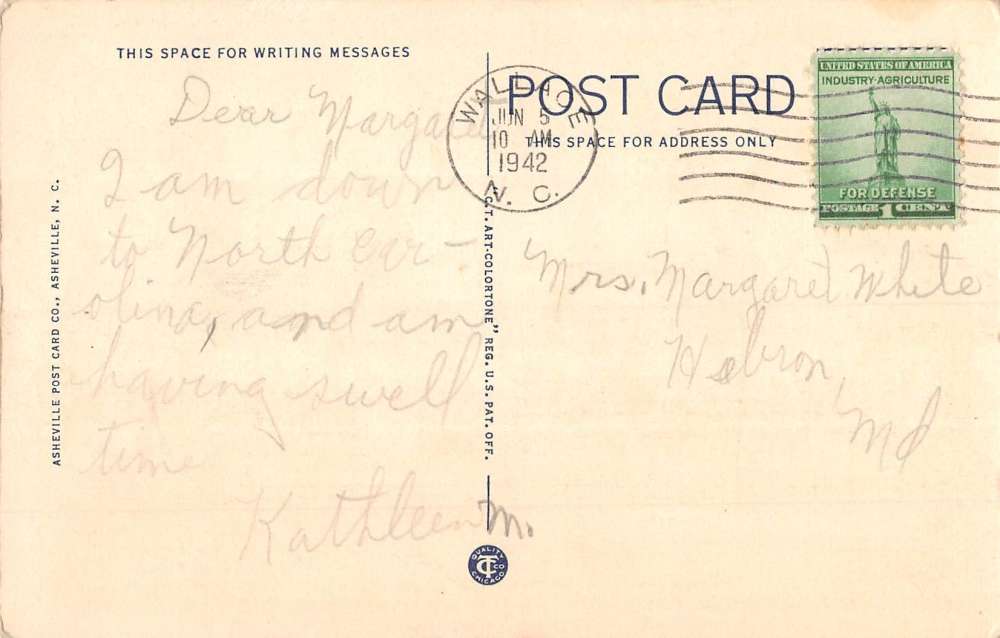 THIS SPACE FOR WRITING MESSAGES
POST CARD
THIS SPACE FOR ADDRESS ONLY
WALLACE
JUN 5
10 AM
1942
N. C.
UNITED STATES OF AMERICA
INDUSTRY·AGRICULTURE
FOR DEFENSE
POSTAGE 1 CENT
Dear Margaret
I am down
to North Car-
olina, and am
having swell
time
Kathleen M.
Mrs. Margaret White
Hebron,
Md
ASHEVILLE POST CARD CO., ASHEVILLE, N. C.
"C.T. ART-COLORTONE" REG. U.S. PAT. OFF.
QUALITY
CT CO
CHICAGO